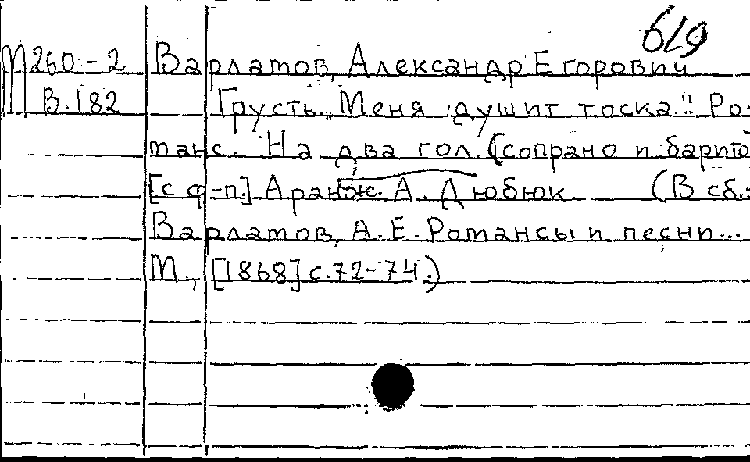 619
М260-2 Варламов, Александр Егорович
В.182 "Грусть. Меня душит тоска." Ро-
манс. На два гол. (сопрано и барито
[с ф-п] Аранж. А. Дюбюк (В сб.:
Варламов, А.Е. Романсы и песни...
М., [1868] с.72-74.)